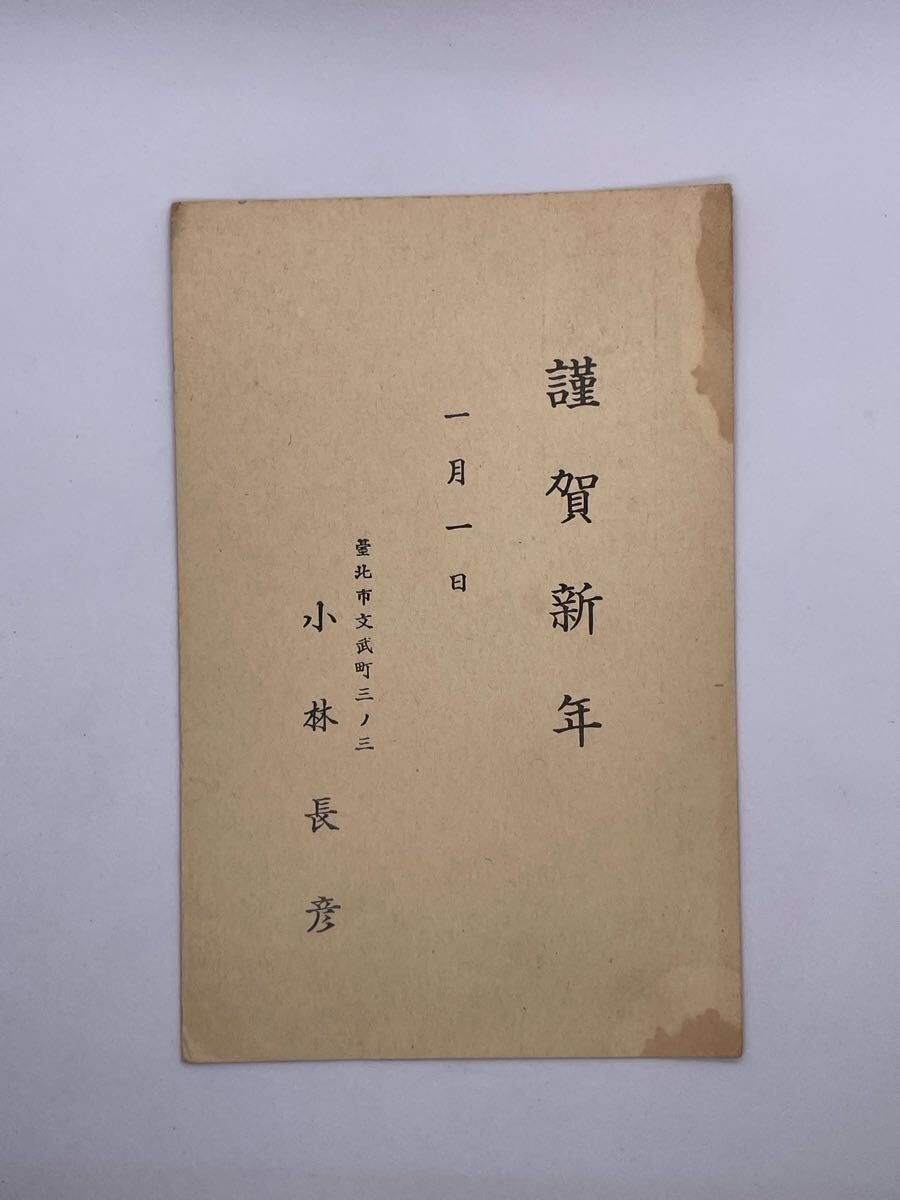 謹賀新年
一月一日
臺北市文武町三ノ三
小林長彦